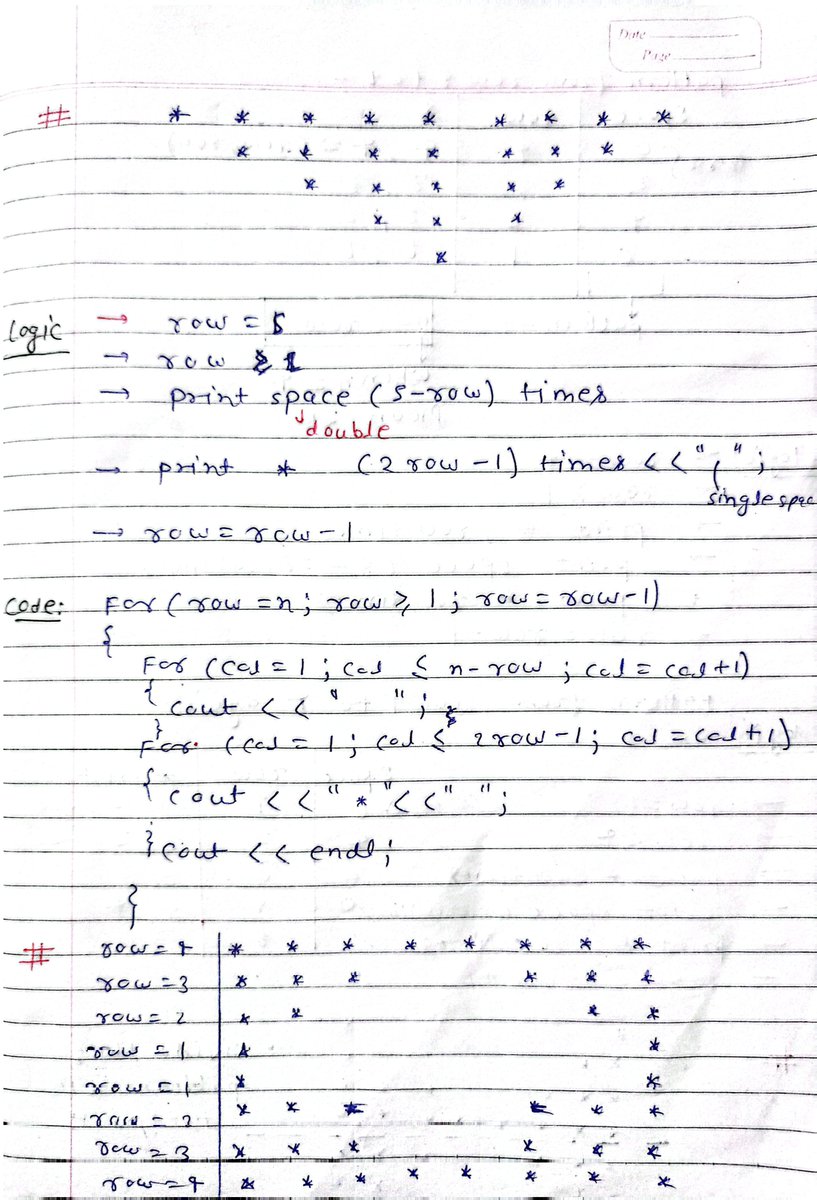 Date
Page
# * * * * * * * * *
* * * * * * *
* * * * *
* * *
*
Logic → row = 5
→ row ≥ 1
→ print space (5-row) times
↓ double
→ print * (2 row -1) times << " " ;
single spac
→ row = row - 1
Code: For (row = n ; row ≥ 1 ; row = row -1)
{
For (col = 1 ; col ≤ n - row ; col = col +1)
{ cout << "  " ;
}
For (col = 1 ; col ≤ 2row -1 ; col = col +1)
{ cout << " * " << " " ;
} cout << endl ;
}
# row = 4 * * * * * * * *
row = 3 * * * * * *
row = 2 * * * *
row = 1 * *
row = 1 * *
row = 2 * * * *
row = 3 * * * * * *
row = 4 * * * * * * * *